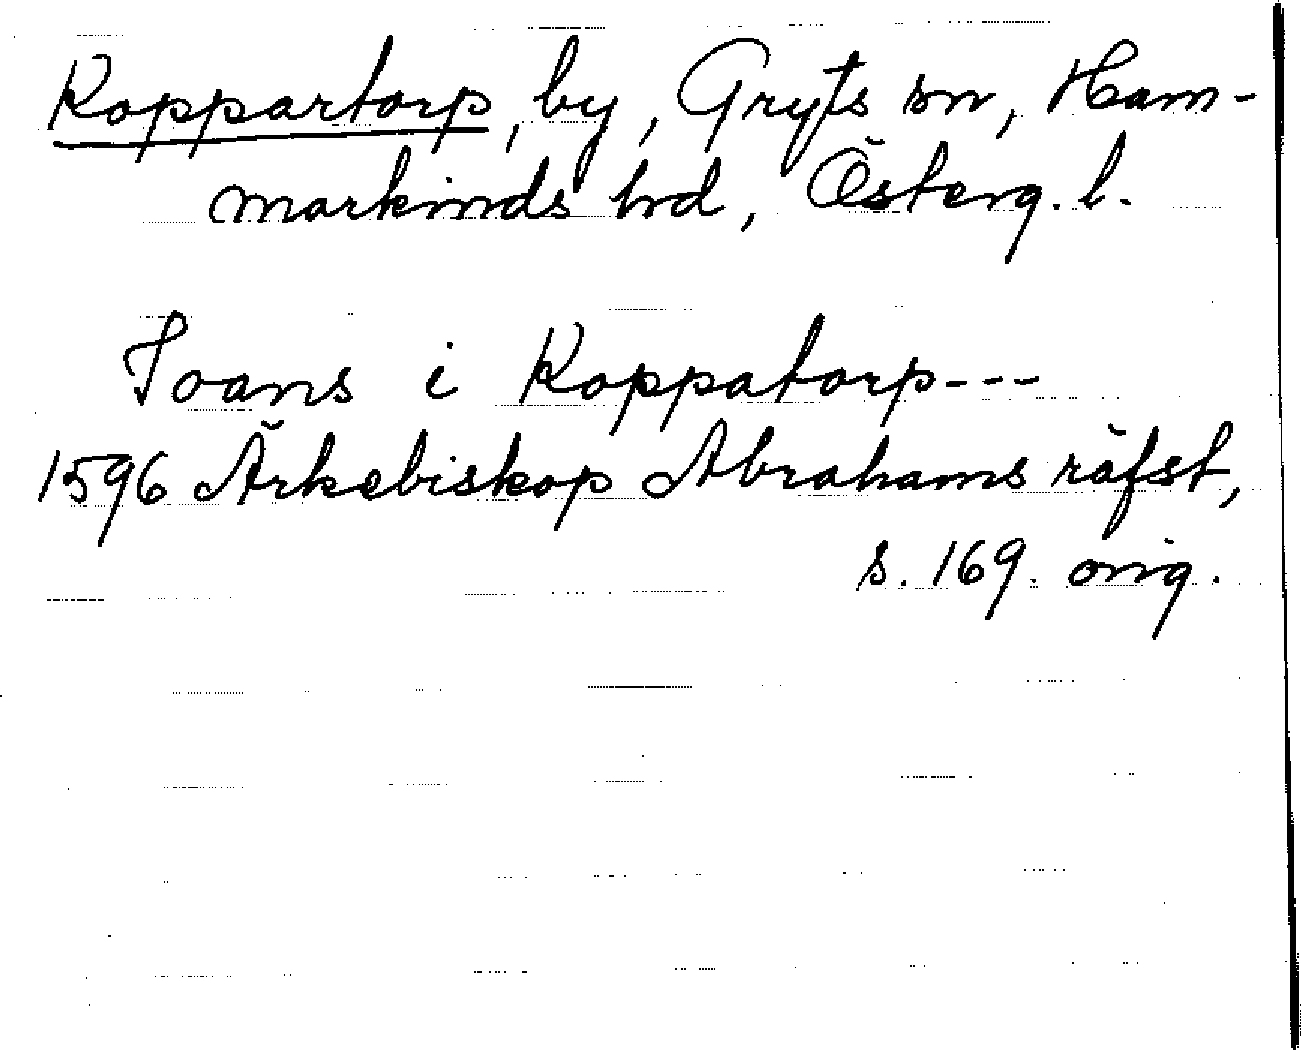 Koppartorp, by, Gryts sn, Ham-
markinds hd, Österg. l.
Joans i Koppatorp---
1596 Ärkebiskop Abrahams räfst,
s. 169. orig.